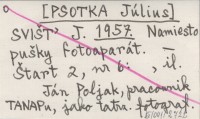 [PSOTKA Július]
SVIŠŤ J. 1957. Namiesto
pušky fotoaparát. –
Štart 2, nr 6: – il.
Ján Poljak, pracovník
TANAPu, jako tatr. fotograf.